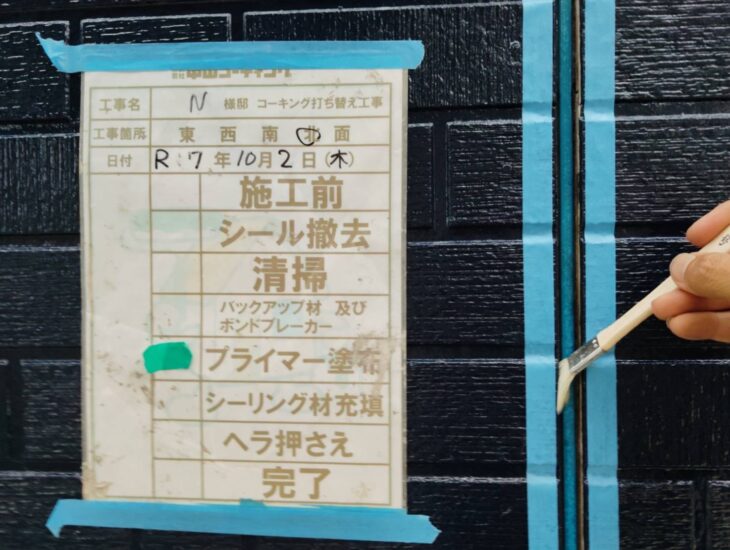 工事名 N 様邸 コーキング打ち替え工事
工事箇所 東 西 南 北 面
日付 R:7 年 10月 2 日(木)
施工前
シール撤去
清掃
バックアップ材 及び
ボンドブレーカー
プライマー塗布
シーリング材充填
ヘラ押さえ
完了